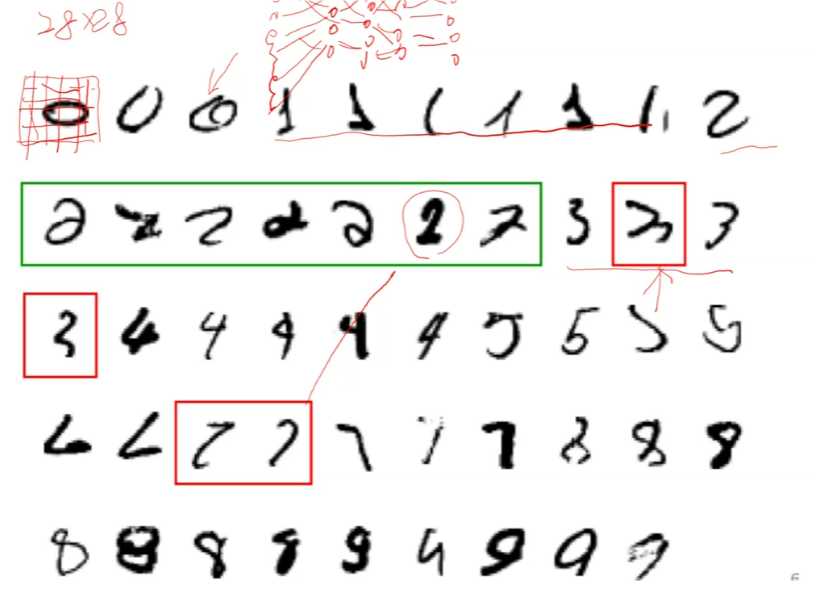 28×28
0 0 0 1 1 1 1 1 1 2
2 2 2 2 2 2 2 3 3 3
3 4 4 4 4 4 5 5 5 5
6 6 7 7 7 7 7 8 8 8
8 8 8 8 9 9 9 9 9